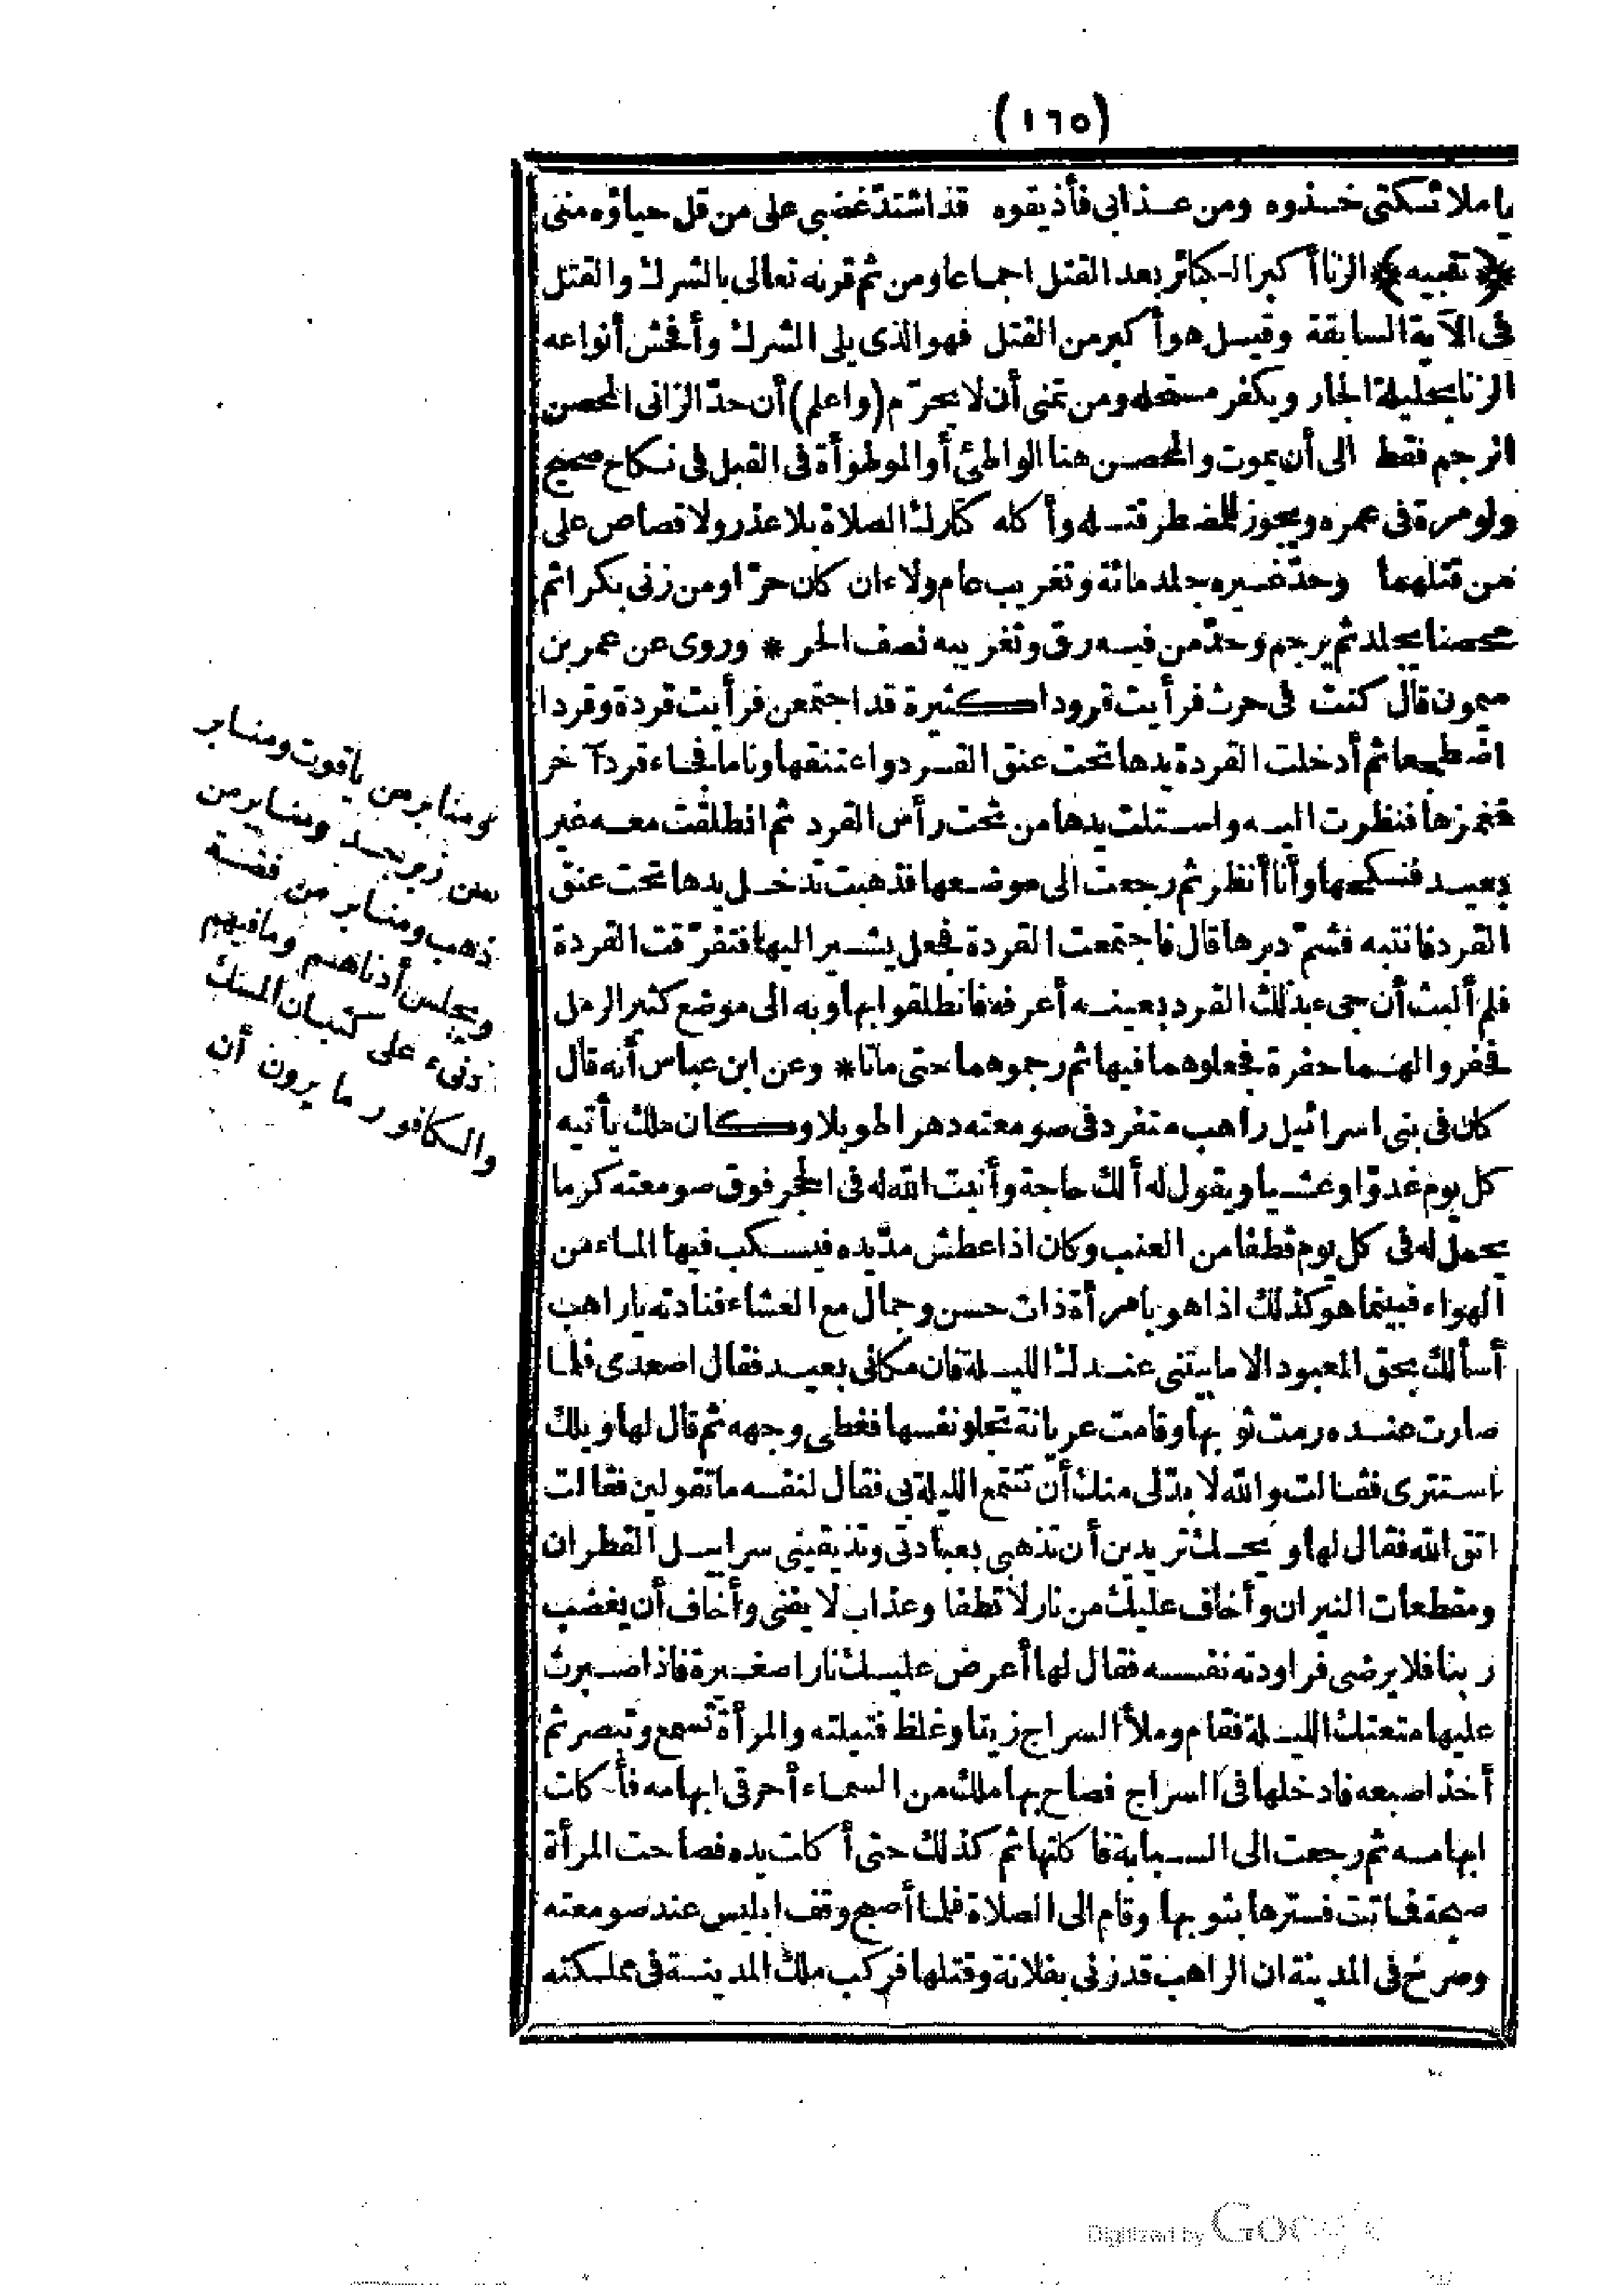 (١٦٥)
ياملائكتى خذوه ومن عذابى فأذيقوه قد اشتدّ غضبى على من قل حياؤه منى
﴿تنبيه﴾ الزنا أكبر الكبائر بعد القتل اجماعا ومن ثم قرنه تعالى بالشرك والقتل
فى الآية السابقة وقيل هو أكبر من القتل فهو الذى يلى الشرك وأفحش أنواعه
الزنا بحليلة الجار ويكفر مستحله ومن تمنى أن لا يحرّم (واعلم) أن حدّ الزانى المحصن
الرجم فقط الى أن يموت والمحصن هنا الواطئ أو الموطوأة فى القبل فى نكاح صحيح
ولو مرة فى عمره ويجوز للمضطر قتله وأكله كتارك الصلاة بلا عذر ولا قصاص على
من قتلهما وحدّ غيره جلد مائة وتغريب عام ولاء ان كان حرّا ومن زنى بكرا ثم
محصنا يجلد ثم يرجم وحدّ من فيه رق وتغريبه نصف الحر * وروى عن عمر بن
ميمون قال كنت فى حرث فرأيت قرودا كثيرة قد اجتمعن فرأيت قردة وقردا
اضطجعا ثم أدخلت القردة يدها تحت عنق القرد واعتنقها وناما فجاء قرد آخر
فغمزها فنظرت اليه واستلت يدها من تحت رأس القرد ثم انطلقت معه غير
بعيد فنكحها وأنا أنظر ثم رجعت الى موضعها فذهبت تدخل يدها تحت عنق
القرد فانتبه فشمّ دبرها قال فاجتمعت القردة فجعل يشير اليها فتفرّقت القردة
فلم ألبث أن جىء بذلك القرد بعينه أعرفه فانطلقوا بها وبه الى موضع كثير الرمل
فحفروا لهما حفرة فجعلوهما فيها ثم رجموهما حتى ماتا * وعن ابن عباس أنه قال
كان فى بنى اسرائيل راهب متفرد فى صومعته دهرا طويلا وكان ملك يأتيه
كل يوم غدوّا وعشيا ويقول له ألك حاجة وأنبت الله له فى الحجر فوق صومعته كرما
يحمل له فى كل يوم قطفا من العنب وكان اذا عطش مدّ يده فيسكب فيها الماء من
الهواء فبينما هو كذلك اذا هو بامرأة ذات حسن وجمال مع العشاء فنادته يا راهب
أسألك بحق المعبود الا ما بيتنى عندك الليلة فان مكانى بعيد فقال اصعدى فلما
صارت عنده رمت ثوبها وقامت عريانة تجلو نفسها فغطى وجهه ثم قال لها ويلك
استترى فقالت والله لا بدّ لى منك أن تتمتع الليلة بى فقال لنفسه ما تقولين فقالت
اتق الله فقال لها ويحك تريدين أن تذهبى بعبادتى وتذيقينى سرابيل القطران
ومقطعات النيران وأخاف عليك من نار لا تطفا وعذاب لا يفنى وأخاف أن يغضب
ربنا فلا يرضى فراودته نفسه فقال لها أعرض عليك نارا صغيرة فاذا صبرت
عليها متعتك الليلة فقام وملأ السراج زيتا وغلظ فتيلته والمرأة تسمع وتبصر ثم
أخذ اصبعه فادخلها فى السراج فصاح بها ملك من السماء أحرقى ابهامه فأكلت
ابهامه ثم رجعت الى السبابة فاكلتها ثم كذلك حتى أكلت يده فصاحت المرأة
صيحة فماتت فسترها بثوبها وقام الى الصلاة فلما أصبح وقف ابليس عند صومعته
وصرخ فى المدينة ان الراهب قد زنى بفلانة وقتلها فركب ملك المدينة فى مملكته
ومنابر من ياقوت ومنابر
من زبرجد ومنابر من
ذهب ومنابر من فضة
ويجلس أدناهم وما فيهم
دنىء على كثبان المسك
والكافور ما يرون أن
Digitized by Google